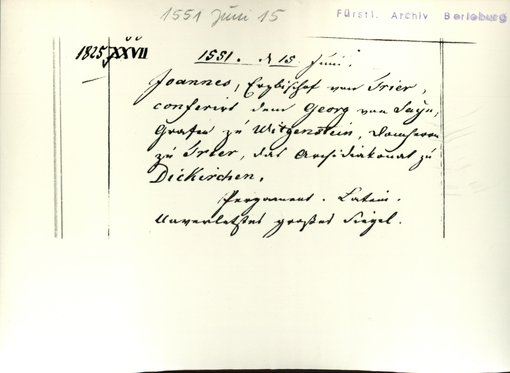 1551 Juni 15
Fürstl. Archiv Berleburg
1825 XXVII
1551. d 15 Juni.
Joannes, Erzbischof von Trier,
conferirt dem Georg von Sayn,
Grafen zu Witgenstein, Domherrn
zu Trier, das Archidiakonat zu
Dickirchen.
Pergament. Latein.
Unverletztes großes Siegel.